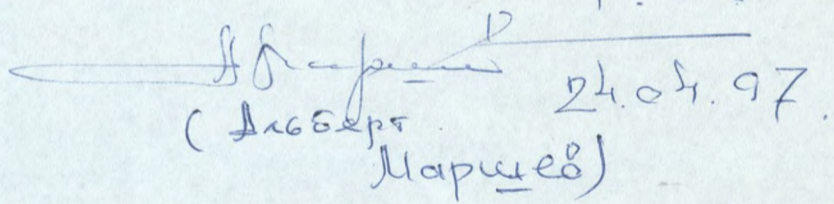 24.04.97
(Альберт
Маршев)